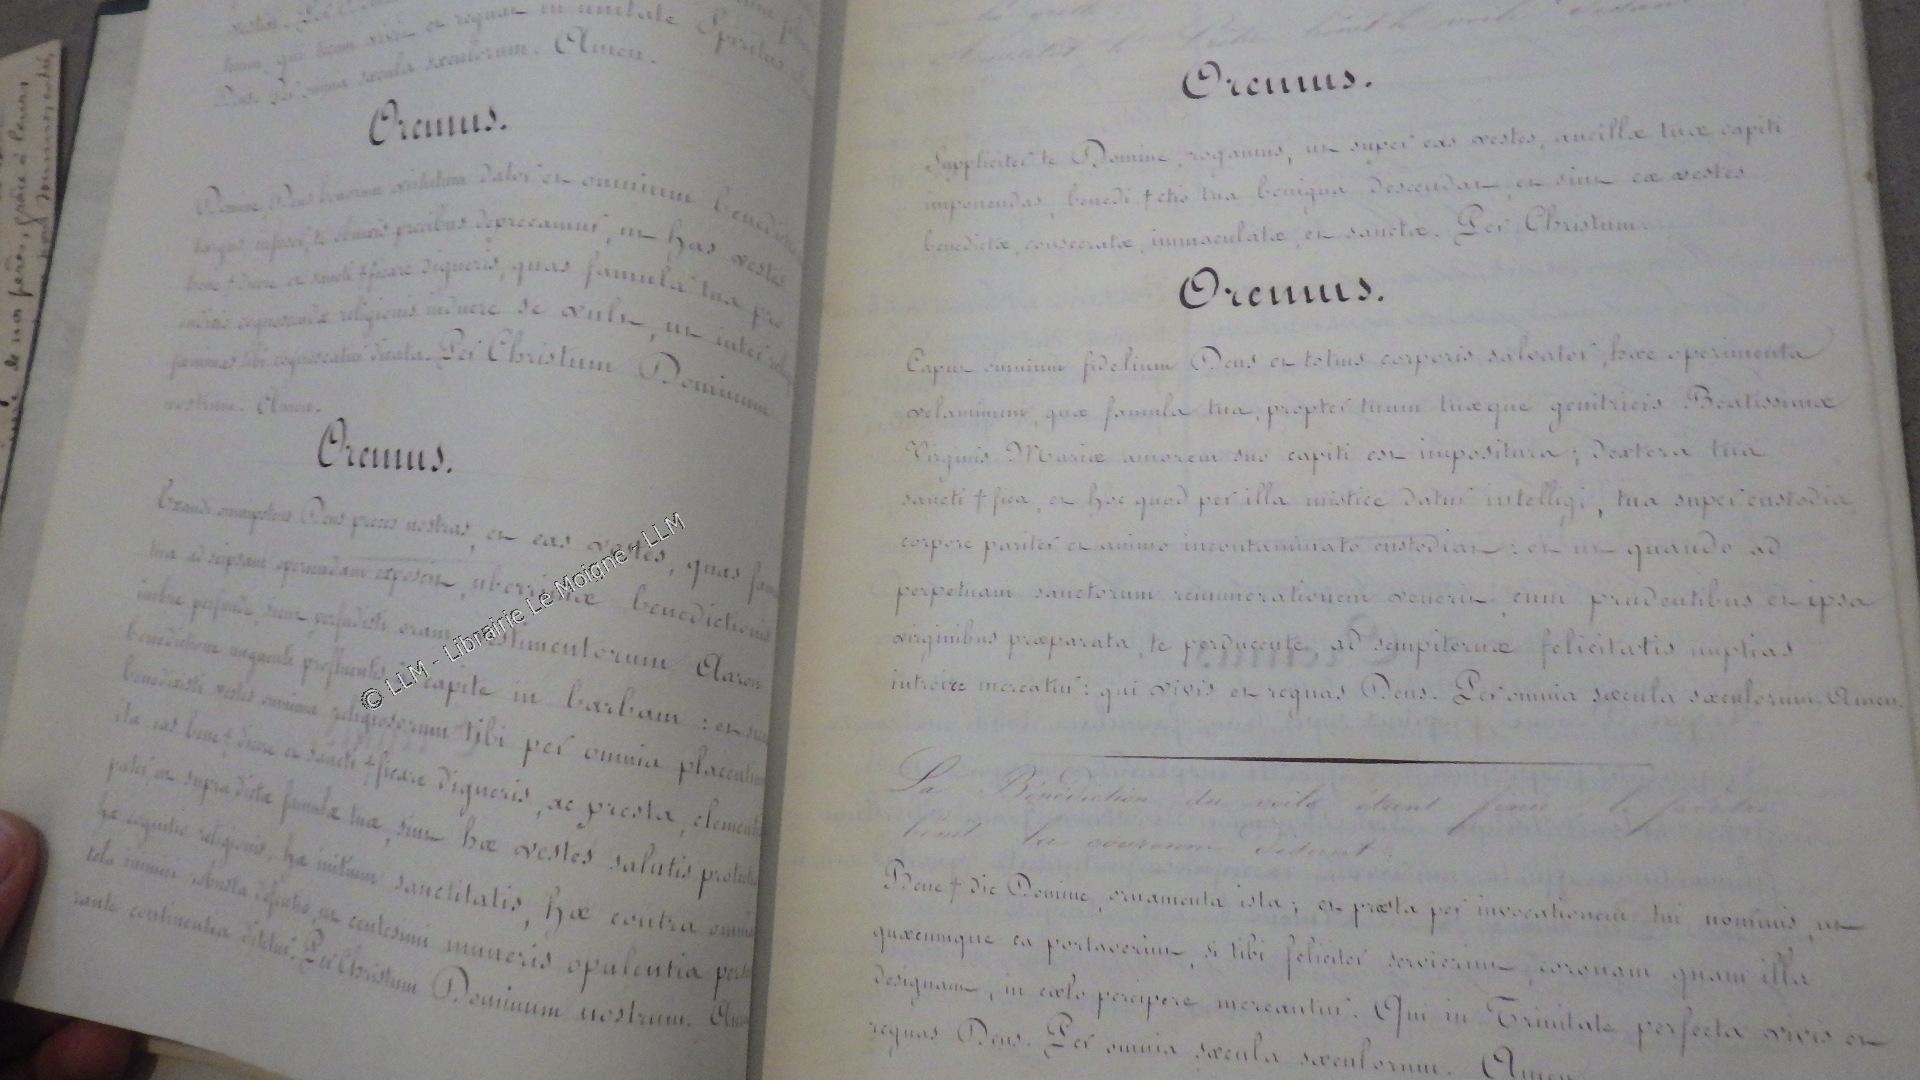 qui tecum vivit et regnat in unitate Spiritus S.
Deus Per omnia sæcula sæculorum. Amen.
Oremus.
Domine, Deus bonorum virtutum dator et omnium benedic
largus infusor, te obnixis precibus deprecamur, ut has vestes
bene † dicere et sancti † ficare digneris, quas famula tua pro
indiciis cognoscendæ religionis induere se vult, ut inter reli
feminas tibi cognoscatur dicata. Per Christum Dominum
nostrum. Amen.
Oremus.
Exaudi omnipotens Deus preces nostras, et eas vestes, quas fam
tua ad seipsam operiendam exposcit, uberrimæ benedictionis
imbre perfunde, sicut perfudisti oram vestimentorum Aaron
benedictione unguenti profluentis, in capite in barbam : et sicut
benedixisti vestes omnium religiosorum tibi per omnia placentium
ita eas bene † dicere et sancti † ficare digneris, ac presta, clement
pater, ut supradictæ famulæ tuæ, sint hæ vestes salutis protectio
hæ cognitio religionis, hæ initium sanctitatis, hæ contra omnia
tela inimici robusta defensio, ut centesimi muneris opulentia perse
rante continentia ditetur. Per Christum Dominum nostrum. Amen
le Prêtre bénit le voile disant
Oremus.
Suppliciter te Domine, rogamus, ut super eas vestes, ancillæ tuæ capiti
imponendas, benedi † ctio tua benigna descendat, et sint eæ vestes
benedictæ, consecratæ, immaculatæ, et sanctæ. Per Christum.
Oremus.
Caput omnium fidelium Deus et totius corporis salvator, hæc operimenta
velaminum, quæ famula tua, propter tuum tuæque genitricis Beatissimæ
Virginis Mariæ amorem suo capiti est impositura ; dextera tua
sancti † fica, et hoc quod per illa mistice datur intelligi, tua super custodia
corpore pariter et animo incontaminato custodiat : et ut quando ad
perpetuam sanctorum remunerationem venerit, cum prudentibus et ipsa
virginibus præparata, te perducente, ad sempiternæ felicitatis nuptias
introire mereatur : qui vivis et regnas Deus. Per omnia sæcula sæculorum. Amen.
La Bénédiction du voile étant finie le prêtre
bénit la couronne disant :
Bene † dic Domine, ornamenta ista ; et præsta per invocationem tui nominis, ut
quæcumque ea portaverint, si tibi feliciter servierint, coronam quam illa
designant, in cælo percipere mereantur. Qui in Trinitate perfecta vivis et
regnas Deus. Per omnia sæcula sæculorum. Amen
© LLM - Librairie Le Moigne - LLM